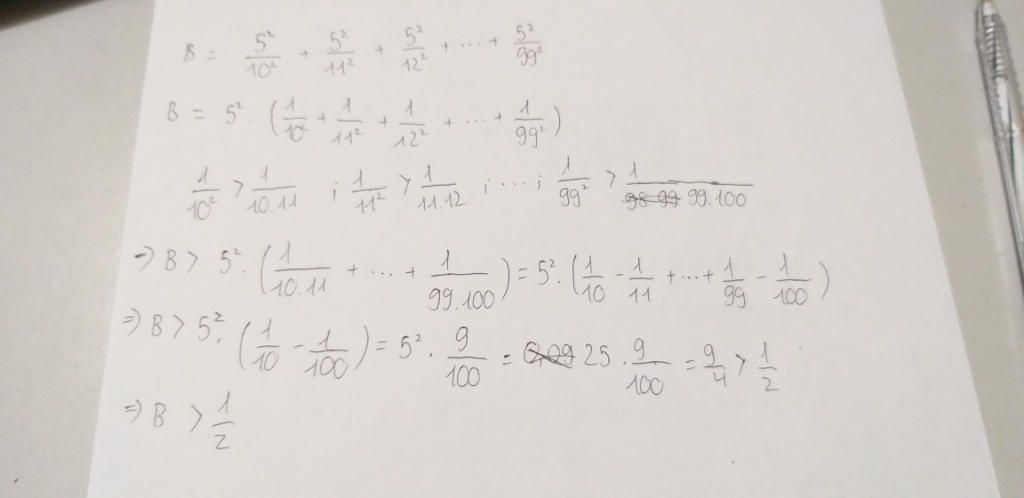 B = 5²/10² + 5²/11² + 5²/12² + ... + 5²/99²
B = 5² . (1/10² + 1/11² + 1/12² + ... + 1/99²)
1/10² > 1/10.11 ; 1/11² > 1/11.12 ; ... ; 1/99² > 1/99.100
=> B > 5² . (1/10.11 + ... + 1/99.100) = 5² . (1/10 - 1/11 + ... + 1/99 - 1/100)
=> B > 5² . (1/10 - 1/100) = 5² . 9/100 = 25 . 9/100 = 9/4 > 1/2
=> B > 1/2